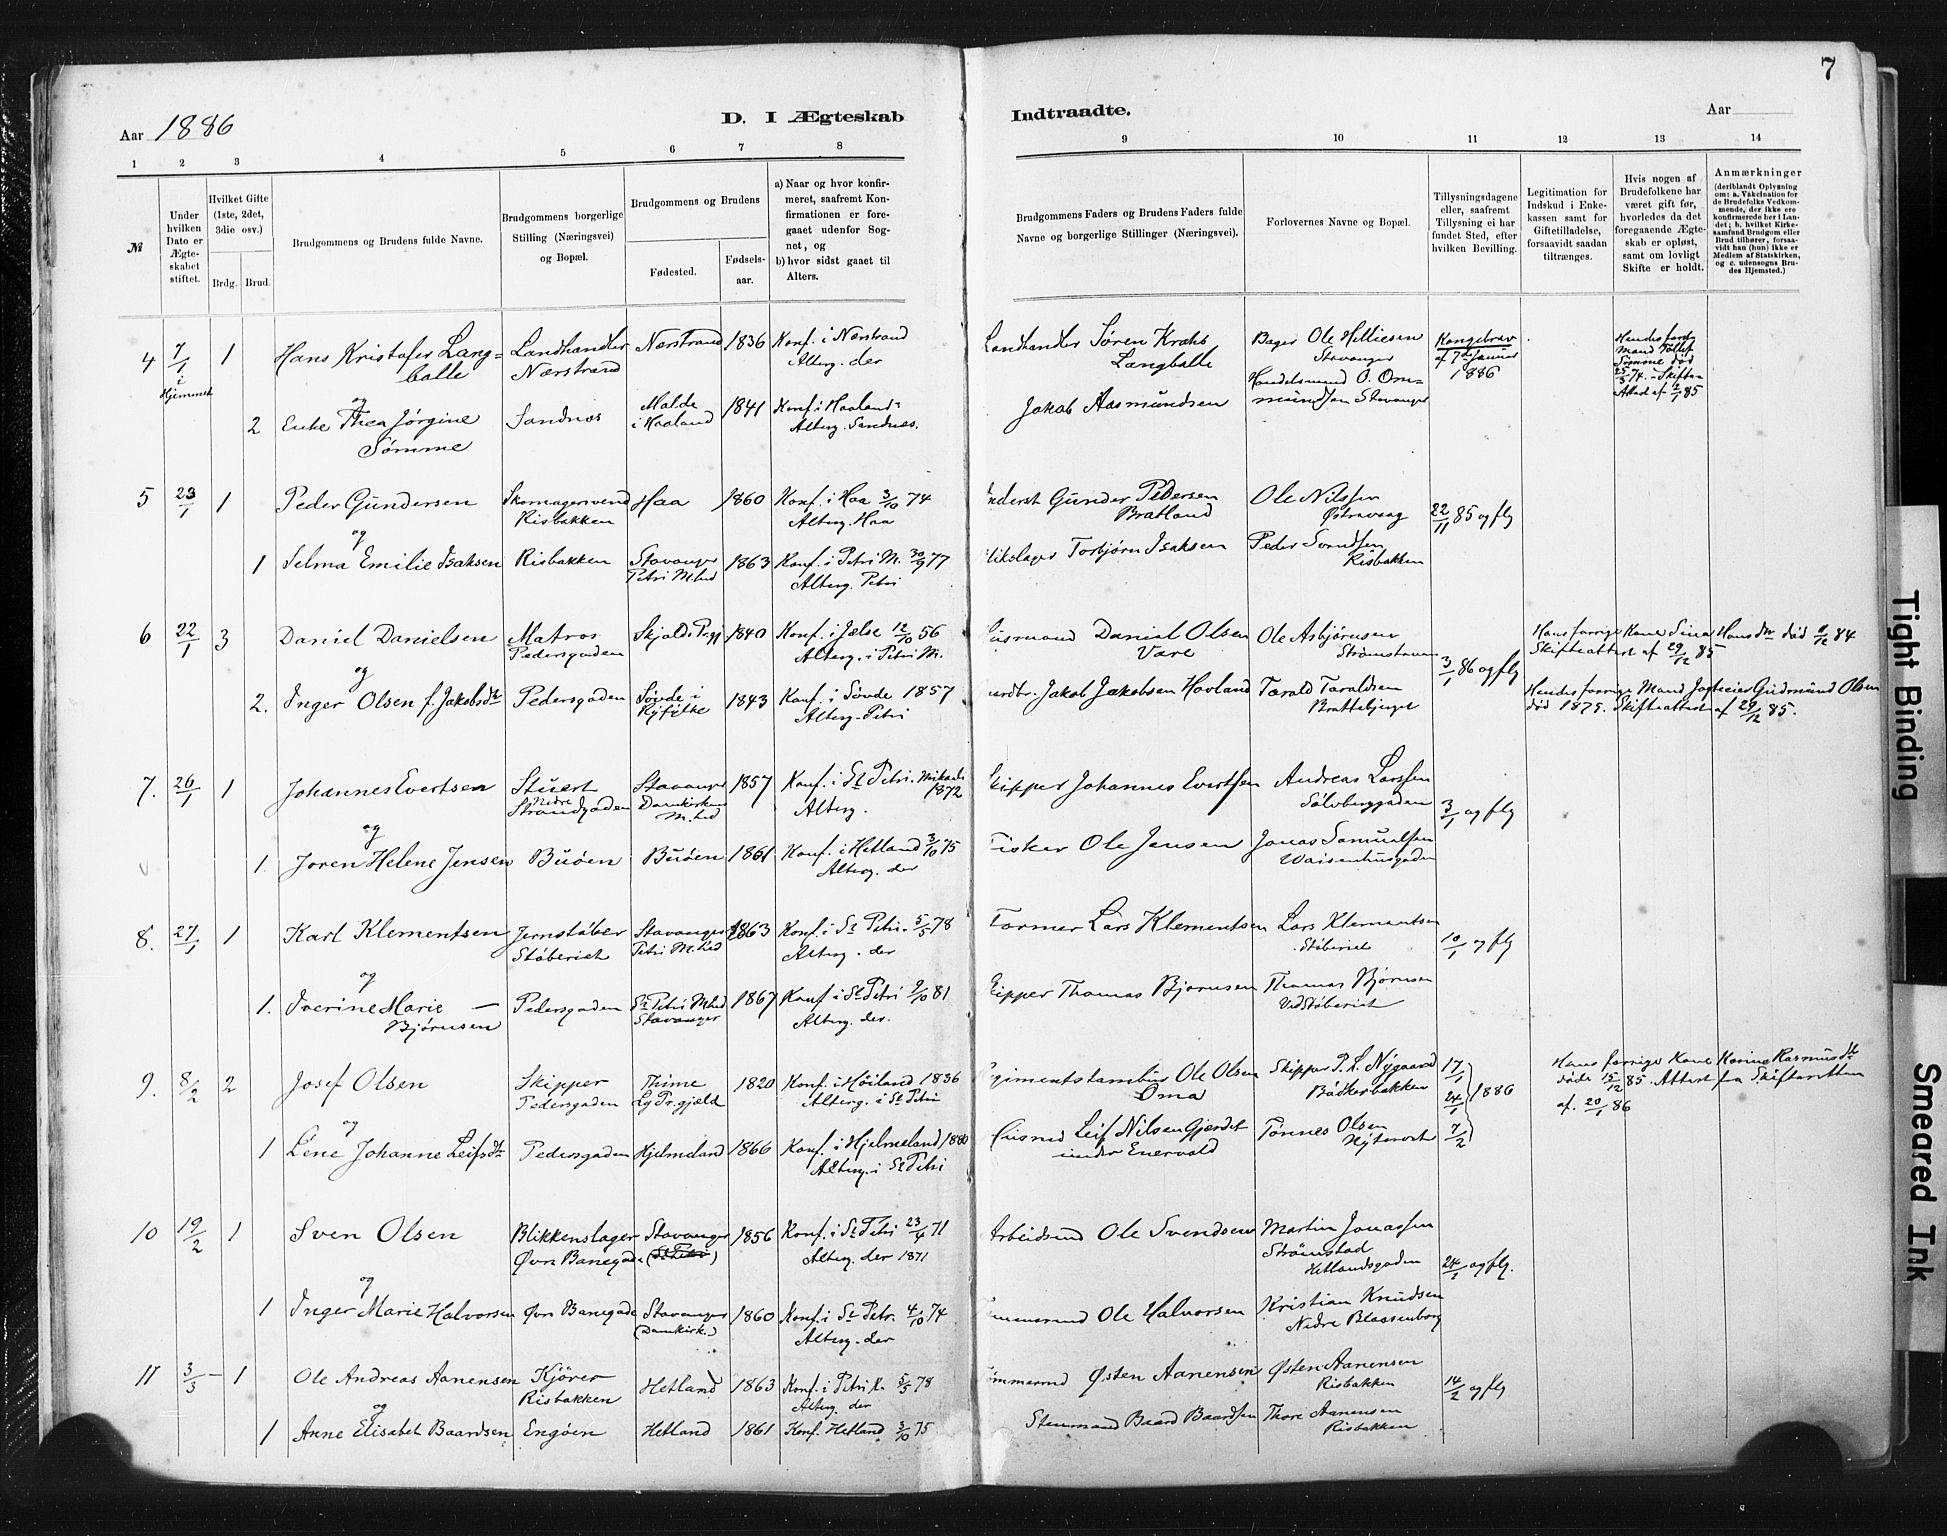 7
Aar 1886
D. I Ægteskab
Indtraadte.
Aar
1 2 3 4 5 6 7 8 9 10 11 12 13 14
№
Under hvilken Dato er Ægte-skabet stiftet.
Hvilket Gifte (1ste, 2det, 3die osv.)
Brdg. Brud.
Brudgommens og Brudens fulde Navne.
Brudgommens borgerlige Stilling (Næringsvei) og Bopæl.
Brudgommens og Brudens
Fødested.
Fødsels-aar.
a) Naar og hvor konfir-meret, saafremt Kon-firmationen er fore-gaaet udenfor Sog-net, og
b) hvor sidst gaaet til Alters.
Brudgommens Faders og Brudens Faders fulde Navne og borgerlige Stillinger (Næringsvei).
Forlovernes Navne og Bopæl.
Tillysningsdagene eller, saafremt Tillysning ei har fundet Sted, efter hvilken Bevilling.
Legitimation for Indskud i Enke-kassen samt for Giftetilladelse, forsaavidt saadan tiltrænges.
Hvis nogen af Brudefolkene har været gift før, hvorledes da det foregaaende Ægte-skab er opløst, samt om lovligt Skifte er holdt.
Anmærkninger
(deriblandt Oplysning om: a. Vakcination for de Brudefolks Vedkom-mende, der ikke ere konfirmerede her i Lan-det; b. hvilket Kirke-samfund Brudgom eller Brud tilhører, forsaa-vidt han (hun) ikke er Medlem af Statskirken, og c. udensogns Bru-des Hjemsted.)
4 7/1 i Hjemmet 1 Hans Kristofer Lang=balle Landhandler Nærstrand Nærstrand 1836 Konf. i Nærstrand Alterg. der Landhandler Søren Krahs Langballe Bager Ole Helliesen Stavanger Kongebrev af 7de Januar 1886 Hendes forr. Mand Tollef Sømme død 25/3 74. Skifte=Attest af 2/1 85
og
2 Enke Thea Jørgine Sømme Sandnes Malde i Haaland 1841 Konf. i Haaland Alterg. Sandnes. Jakob Aasmundsen Handelsmand O. Om=mundsen Stavanger
5 23/1 1 Peder Gundersen Skomagersvend Risbakken Haa 1860 Konf. i Haa 3/10 74 Alterg. Haa Gunder Pedersen Bratland Ole Nilsen Østravaag 22/11 85 og flg
og
1 Selma Emilie Isaksen Risbakken Stavanger Petri M.hed 1863 Konf. i Petri M. 30/9 77 Alterg. Petri Torbjørn Isaksen Peder Svendsen Risbakken
6 22/1 3 Daniel Danielsen Matros Pedersgaden Skjold Pgj 1840 Konf. i Jælse 12/10 56 Alterg. i Petri M. Daniel Olsen Være Ole Asbjørnsen 3/1 86 og flg Hans forrige Kone Sina Hansdtr død 8/12 84 Skifteattest af 29/12 85
og
2. Inger Olsen f. Jakobsdtr Pedersgaden Søvde i Ryfylke 1843 Konf. i Søvde 1857 Alterg. Petri Jakob Jakobsen Hovland Tarald Taraldsen Brattebjerget Hendes forrige Mand Gudmund Olsen død 1875. Skifteattest af 29/12 85.
7. 26/1 1 Johannes Evertsen Stuert Nedre Strandgaden Stavanger Domkirken M.hed 1857 Konf. i St Petri 1872 Alterg. Skipper Johannes Evertsen Andreas Larssen Sølvberggaden 3/1 og flg
og
1. Joren Helene Jensen Buøen Buøen 1861 Konf. i Hetland 3/10 75 Alterg. der Fisker Ole Jensen Jonas Samuelsen Waisenhusgaden
8. 27/1 1 Karl Klementsen Jernstøber Støberiet Stavanger Petri M.hed 1863 Konf. i St Petri 5/5 78 Alterg. der Former Lars Klementsen Lars Klementsen Støberiet 10/1 og flg
og
1. Iverine Marie Bjørnsen Pedersgaden St Petri M.hed Stavanger 1867 Konf. i St Petri 9/10 81 Alterg. der. Skipper Thomas Bjørnsen Thomas Bjørnsen Ved Støberiet
9. 8/2 2 Josef Olsen Skipper Pedersgaden Thime Ly Pr.gjæld 1820 Konf. i Høiland 1836 Alterg. i St Petri Regimentstambur Ole Olsen Oma Skipper P. L. Nygaard Bødkerbakken 17/1 24/1 7/2 1886 Hans forrige Kone Karine Rasmusdtr døde 15/12 85. Attest fra Skifteretten af 20/1 86
og
1 Lene Johanne Leifsdtr Pedersgaden Hjelmeland 1866 Konf. i Hjelmeland 1880 Alterg. i St Petri Husmd Leif Nilsen Gjerdet under Enervald Tønnes Olsen
10 19/2 1 Sven Olsen Blikkenslager Øvre Banegade Stavanger (St Petri) 1856 Konf. i St Petri 23/4 71 Alterg. der 1871 Arbeidsmd Ole Svendsen Martin Jonassen Strømstad Hetlandsgaden 24/1 og flg.
og
1 Inger Marie Halvorsen Øvre Banegade Stavanger (Domkirk.) 1860 Konf. i St Petri 4/10 74 Alterg. der Ole Halvorsen Kristian Knudsen Nedre Blaasenborg
11 3/3 1 Ole Andreas Aanensen Kjører Risbakken Hetland 1863 Konf. i Petri K. 5/5 78 Alterg. der Tømmermd Østen Aanensen Østen Aanensen Risbakken 14/2 og flg
og
1 Anne Elisabet Baardsen Engøen Hetland 1861 Konf. Hetland 3/10 75 Baard Baardsen Thore Aanensen Risbakken
Tight Binding
Smeared Ink